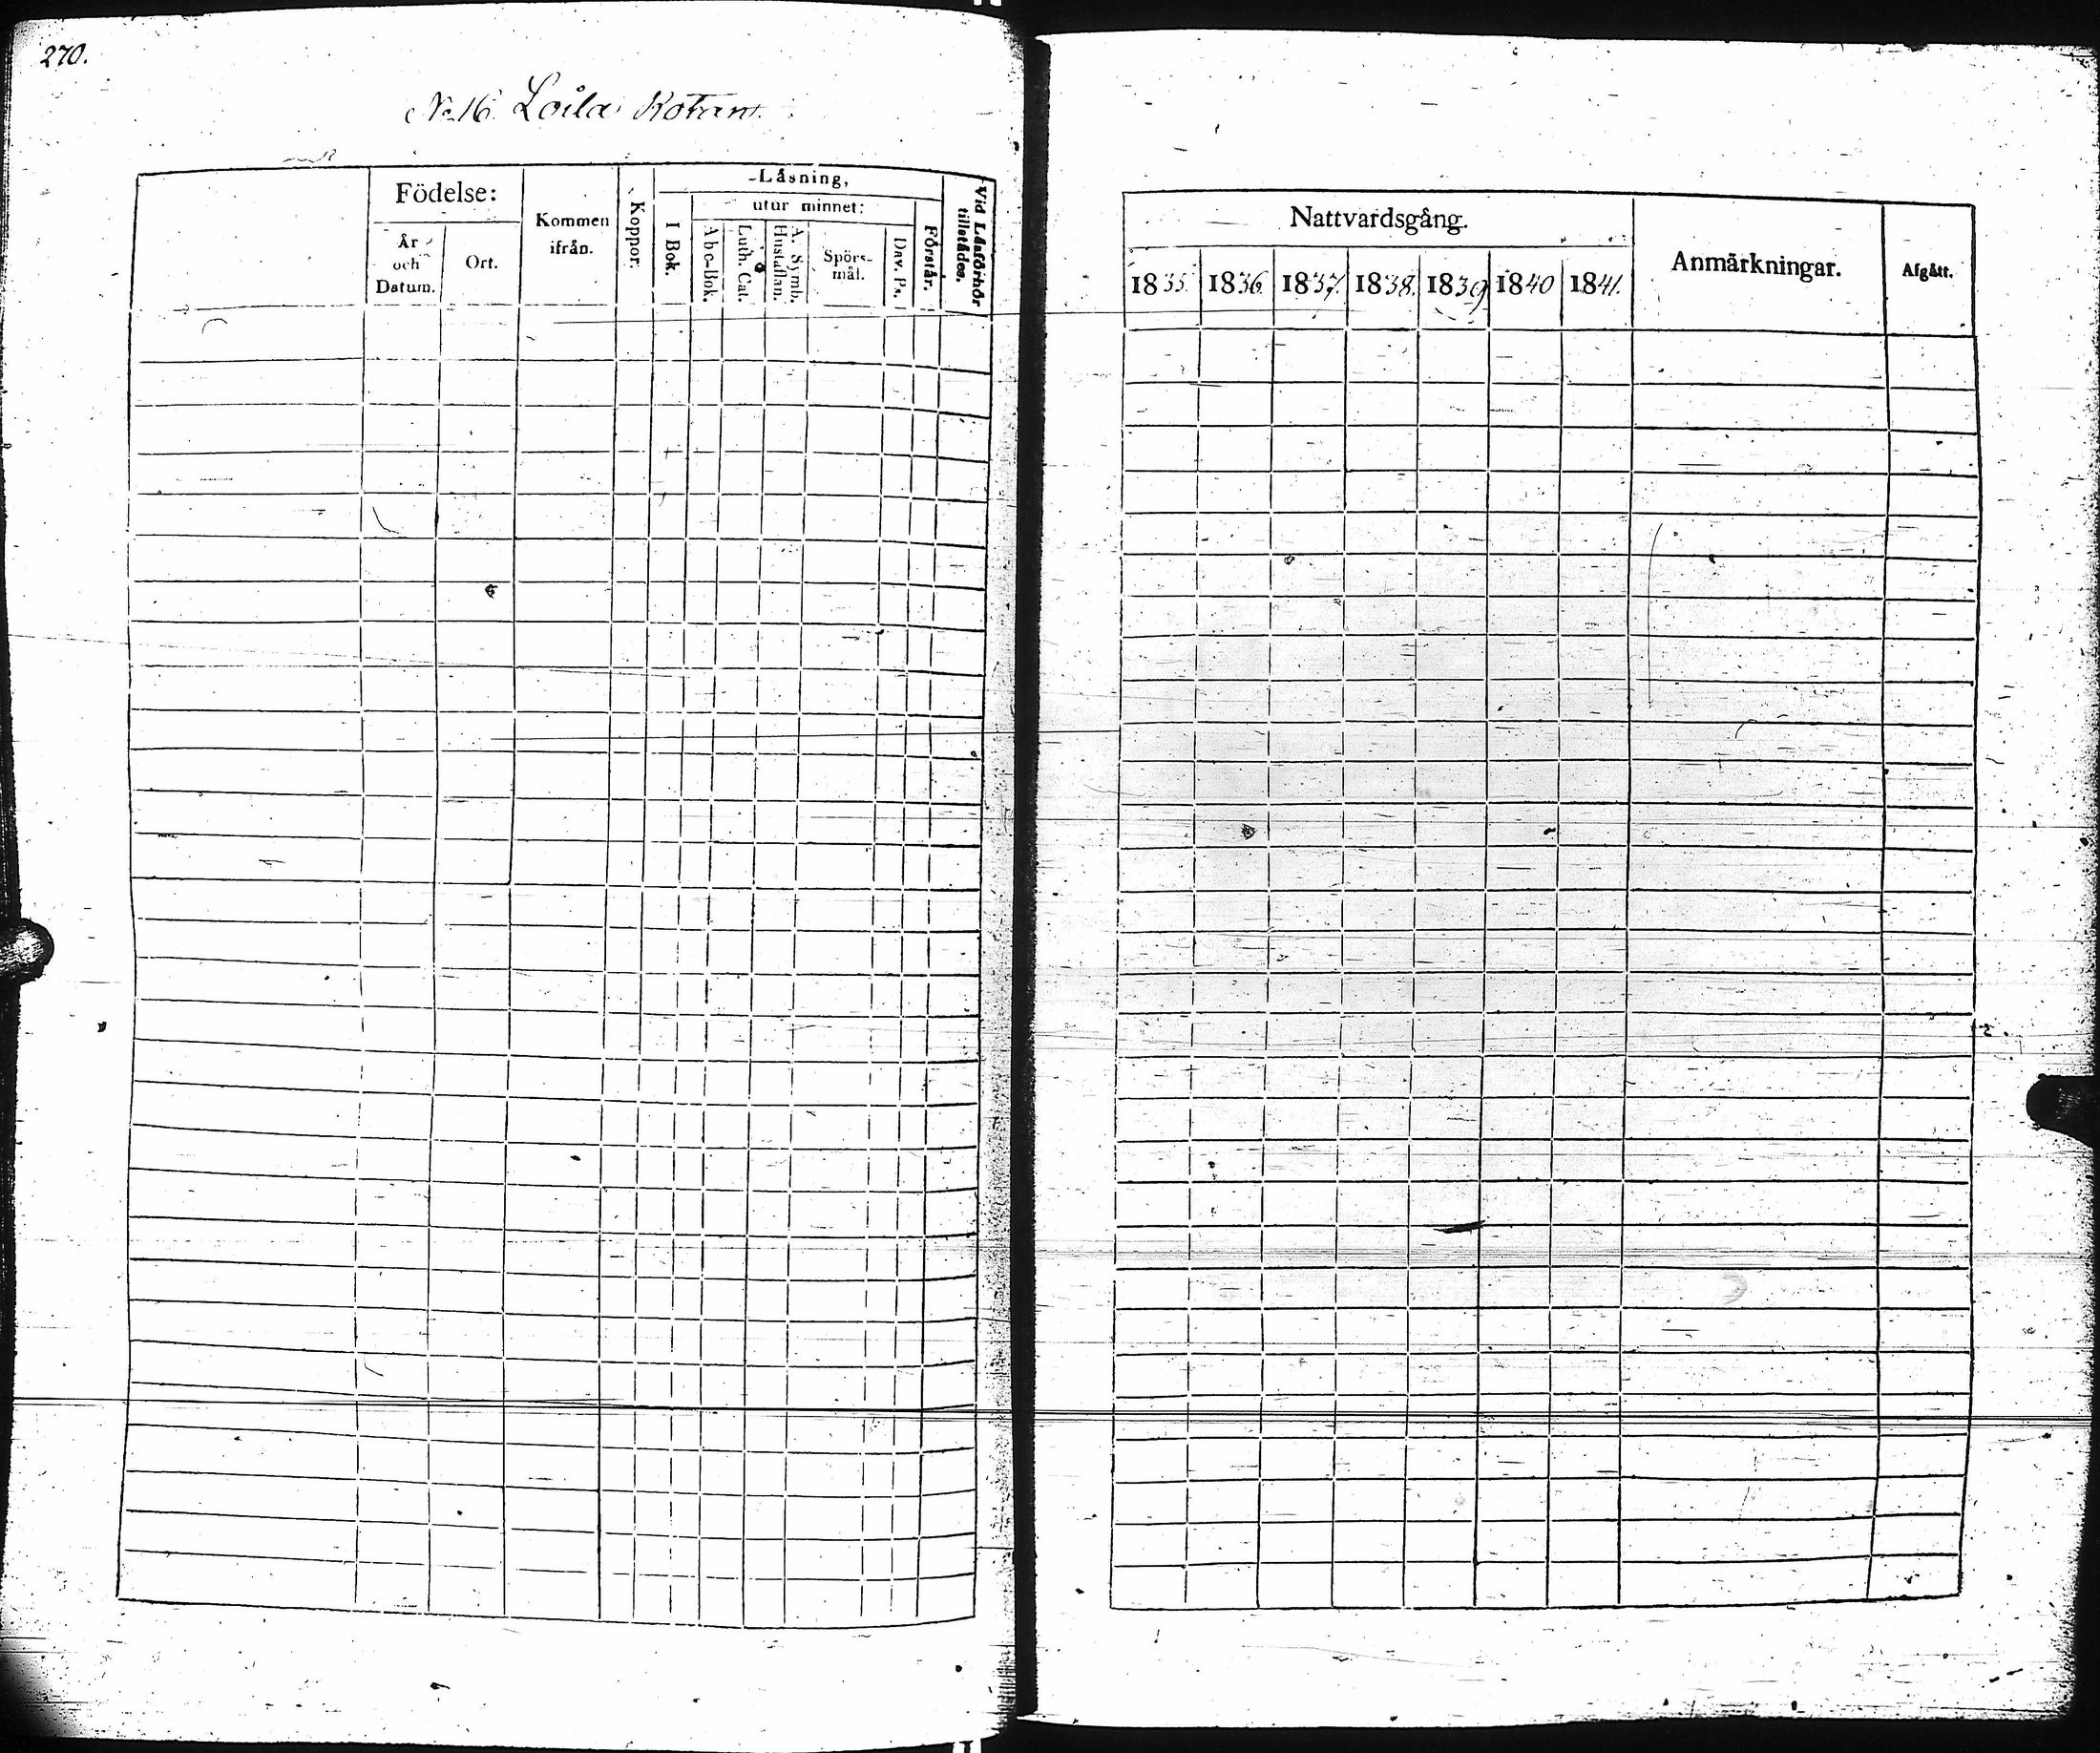 270.
No 16. Loila Kotans.
Födelse:
År och Datum.
Ort.
Kommen ifrån.
Koppor.
Låsning,
I Bok.
utur minnet:
Abc-Bok.
Luth. Cat.
A. Symb. Hustaflan.
Spörs-mål.
Dav. Ps.
Förstår.
Vid Låsförhör tillstådes.
Nattvardsgång.
1835. 1836. 1837. 1838. 1839 1840 1841.
Anmärkningar.
Afgått.